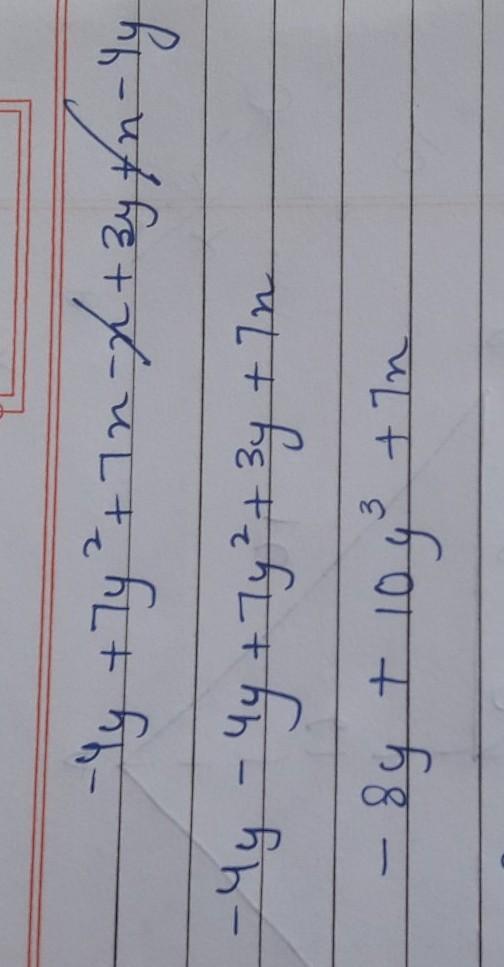 -4y + 7y² + 7x - x + 3y + x - 4y
-4y - 4y + 7y² + 3y + 7x
- 8y + 10y³ + 7x